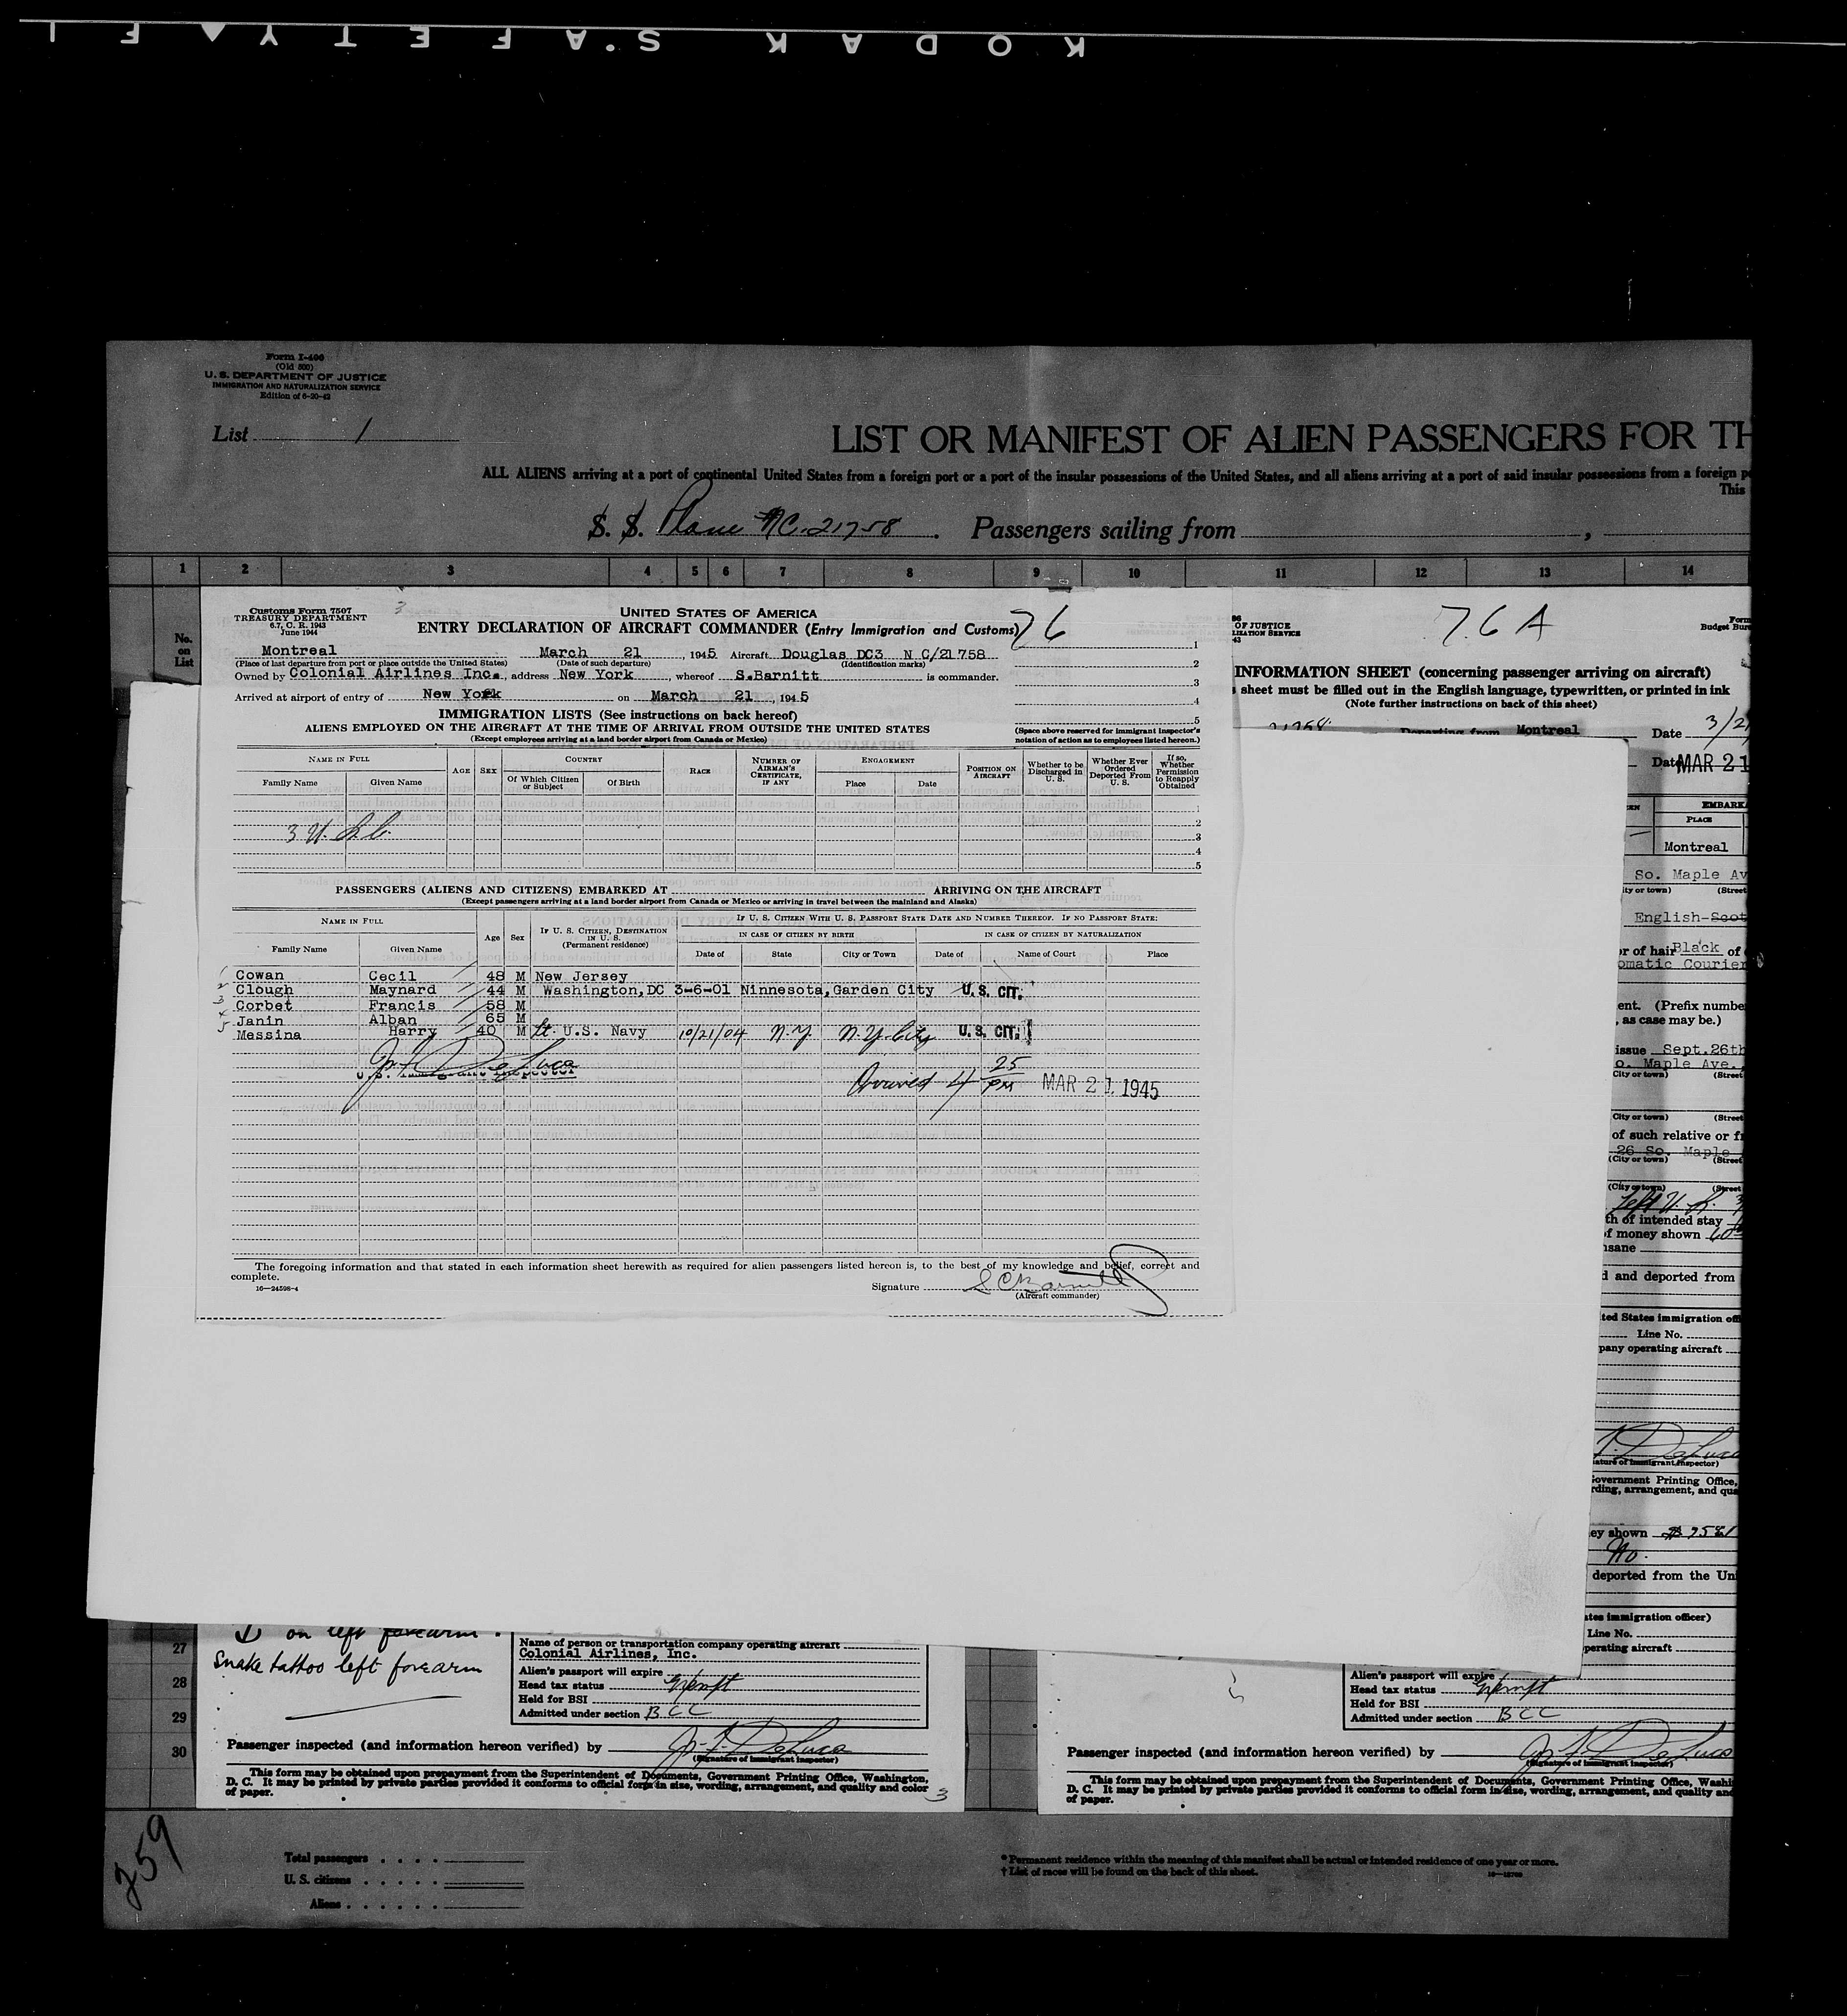 KODAK S.A.F.E.T.Y. F I
Form I-466
(Old 500)
U. S. DEPARTMENT OF JUSTICE
IMMIGRATION AND NATURALIZATION SERVICE
Edition of 6-20-42
List 1
LIST OR MANIFEST OF ALIEN PASSENGERS FOR TH
ALL ALIENS arriving at a port of continental United States from a foreign port or a port of the insular possessions of the United States, and all aliens arriving at a port of said insular possessions from a foreign p
This
S. S. Plane NC. 21758. Passengers sailing from ,
1 2 3 4 5 6 7 8 9 10 11 12 13 14
No. on List
Customs Form 7507
TREASURY DEPARTMENT
6.7, C. R. 1943
June 1944
3
UNITED STATES OF AMERICA
ENTRY DECLARATION OF AIRCRAFT COMMANDER (Entry Immigration and Customs) 76
Montreal March 21, 1945 Aircraft Douglas DC3 N C/21758
(Place of last departure from port or place outside the United States) (Date of such departure) (Identification marks)
Owned by Colonial Airlines Inc., address New York, whereof S.Barnitt is commander.
Arrived at airport of entry of New York on March 21, 1945
1
2
3
4
5
(Space above reserved for immigrant inspector's notation of action as to employees listed hereon.)
IMMIGRATION LISTS (See instructions on back hereof)
ALIENS EMPLOYED ON THE AIRCRAFT AT THE TIME OF ARRIVAL FROM OUTSIDE THE UNITED STATES
(Except employees arriving at a land border airport from Canada or Mexico)
NAME IN FULL AGE SEX COUNTRY RACE NUMBER OF AIRMAN'S CERTIFICATE, IF ANY ENGAGEMENT POSITION ON AIRCRAFT Whether to be Discharged in U. S. Whether Ever Ordered Deported From U. S. If so, Whether Permission to Reapply Obtained
Family Name Given Name Of Which Citizen or Subject Of Birth Place Date
1
2
3
4
5
PASSENGERS (ALIENS AND CITIZENS) EMBARKED AT ARRIVING ON THE AIRCRAFT
(Except passengers arriving at a land border airport from Canada or Mexico or arriving in travel between the mainland and Alaska)
NAME IN FULL Age Sex IF U. S. CITIZEN, DESTINATION IN U. S. (Permanent residence) IF U. S. CITIZEN WITH U. S. PASSPORT STATE DATE AND NUMBER THEREOF. IF NO PASSPORT STATE:
IN CASE OF CITIZEN BY BIRTH IN CASE OF CITIZEN BY NATURALIZATION
Family Name Given Name Date of State City or Town Date of Name of Court Place
1 Cowan Cecil 48 M New Jersey
2 Clough Maynard 44 M Washington,DC 3-6-01 Ninnesota,Garden City U. S. CIT.
3 Corbet Francis 58 M
4 Janin Alban 65 M
5 Messina Harry 40 M Lt. U.S. Navy 10/21/04 N.Y. N.Y. City U. S. CIT.
U.S. Immigrant Inspector
Arrived 4 25 PM MAR 21 1945
The foregoing information and that stated in each information sheet herewith as required for alien passengers listed hereon is, to the best of my knowledge and belief, correct and
complete.
16—24598-4
Signature S C Barnitt
(Aircraft commander)
OF JUSTICE
LIZATION SERVICE
43
76 A
Form
Budget Bure
INFORMATION SHEET (concerning passenger arriving on aircraft)
sheet must be filled out in the English language, typewritten, or printed in ink
(Note further instructions on back of this sheet)
Departing from Montreal Date 3/21
Date MAR 21
EMBARKA
PLACE
Montreal
So. Maple Av
ity or town) (Street
English-Scot
or of hair Black of
omatic Courier
ent. (Prefix number
, as case may be.)
issue Sept.26th
o. Maple Ave.
City or town) (Street
City or town) (Street
of such relative or fr
26 So. Maple
(City or town) (Street
(City or town) (Street
th of intended stay
f money shown
nsane
d and deported from
ted States immigration off
Line No.
pany operating aircraft
ature of immigrant inspector)
Government Printing Office,
rding, arrangement, and qua
ey shown
No.
deported from the Un
ates immigration officer)
Line No.
perating aircraft
27
28
29
30
on left forearm.
Snake tattoo left forearm
Name of person or transportation company operating aircraft
Colonial Airlines, Inc.
Alien's passport will expire
Head tax status Exempt
Held for BSI
Admitted under section BCC
Passenger inspected (and information hereon verified) by
(Signature of immigrant inspector)
This form may be obtained upon prepayment from the Superintendent of Documents, Government Printing Office, Washington,
D. C. It may be printed by private parties provided it conforms to official form in size, wording, arrangement, and quality and color
of paper.
3
Alien's passport will expire
Head tax status Exempt
Held for BSI
Admitted under section BCC
Passenger inspected (and information hereon verified) by
(Signature of immigrant inspector)
This form may be obtained upon prepayment from the Superintendent of Documents, Government Printing Office, Washi
D. C. It may be printed by private parties provided it conforms to official form in size, wording, arrangement, and quality and
of paper.
259
Total passengers
U. S. citizens
Aliens
* Permanent residence within the meaning of this manifest shall be actual or intended residence of one year or more.
† List of races will be found on the back of this sheet.